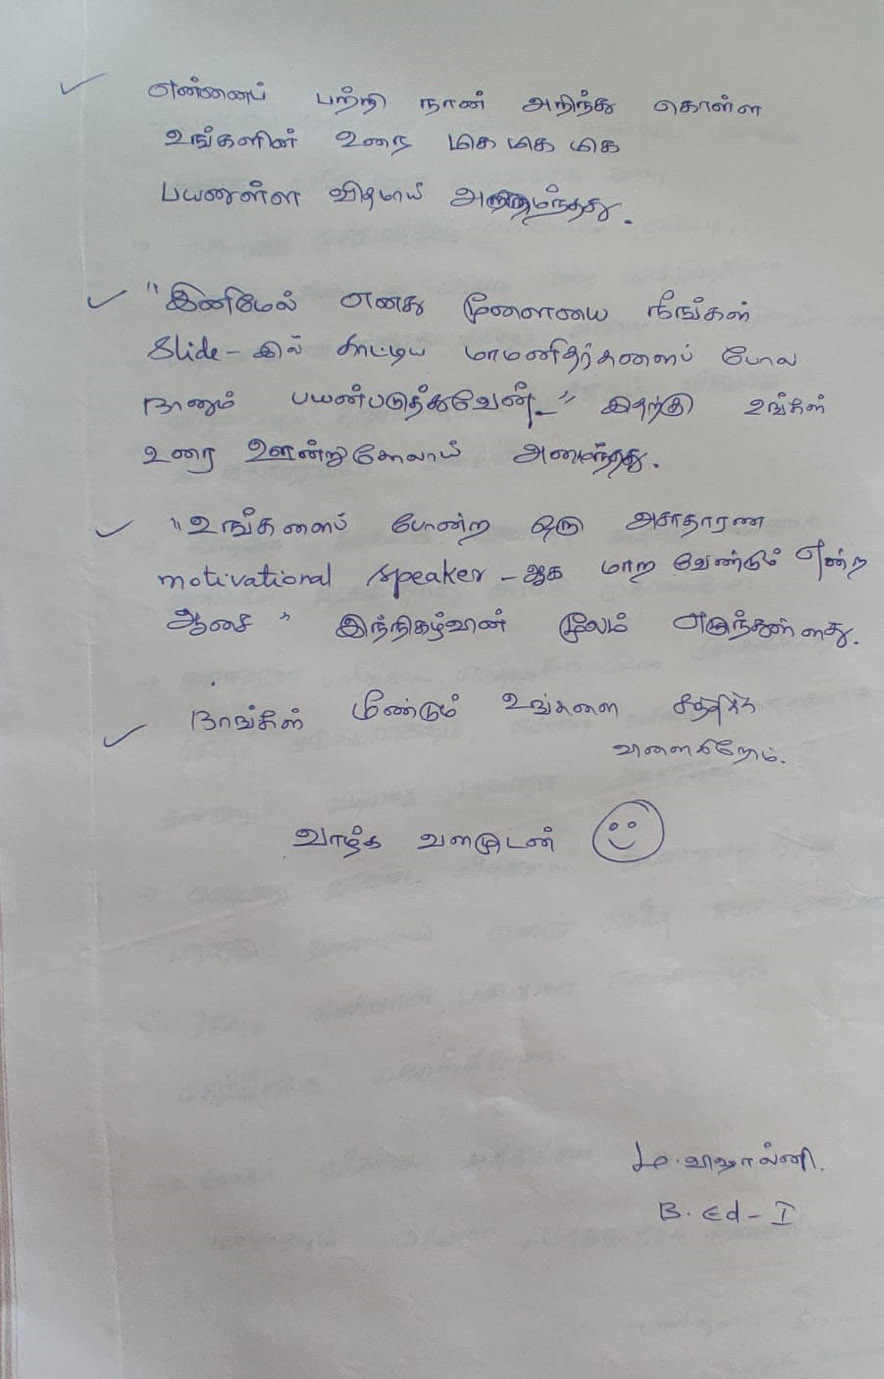 என்னைப் பற்றி நான் அறிந்து கொள்ள
உங்களின் உரை மிக மிக மிக
பயனுள்ள விதமாய் அமைந்தது.
"இனிமேல் எனது மூளையை நீங்கள்
Slide-இல் காட்டிய மாமனிதர்களைப் போல
நானும் பயன்படுத்துவேன்" இதற்கு உங்கள்
உரை ஊன்றுகோலாய் அமைந்தது.
"உங்களைப் போன்ற ஒரு அசாதாரண
motivational speaker-ஆக மாற வேண்டும் என்ற
ஆசை" இந்நிகழ்வின் மூலம் எழுந்துள்ளது.
நாங்கள் மீண்டும் உங்களை சந்திக்க
விழைகிறோம்.
வாழ்க வளமுடன்
B.Ed-I